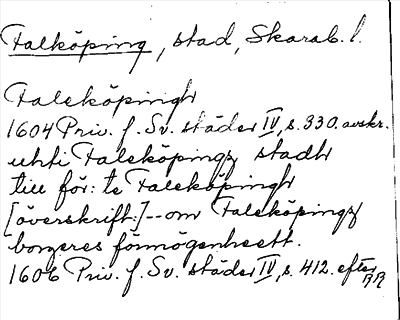 Falköping, stad, Skarab. l.
Faleköpingh
1604 Priv. f. Sv. städer IV, s. 330. avskr.
uhti Faleköpingz stadh
till för: te Faleköpingh
[överskrift:] -- om Faleköpingz
borgeres förmögenheett.
1606 Priv. f. Sv. städer IV, s. 412. efter RR